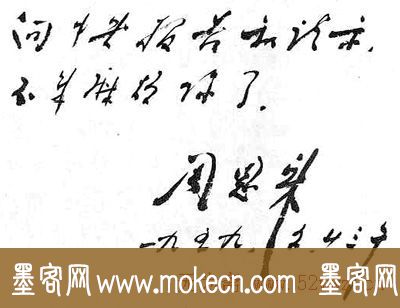 向中央报告和请示,
不 你了.
周恩来
一九五九.
墨客网 www.mokecn.com 墨客网